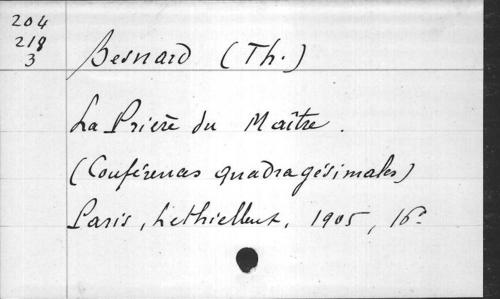 204
218
3
Besnard (Th.)
La Prière du Maître.
(Conférences quadragésimales)
Paris, Lethielleux, 1905, 16º